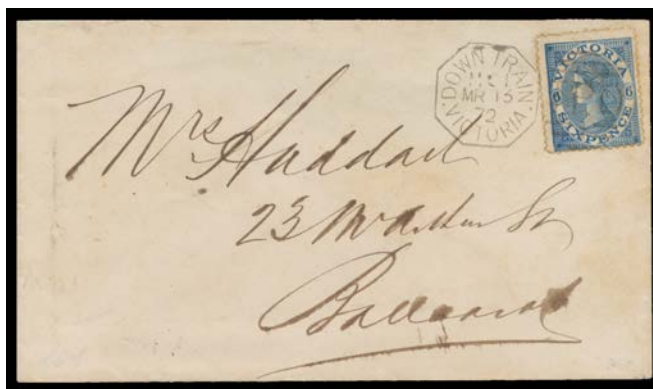 DOWN TRAIN
MR 15
72
VICTORIA
VICTORIA
6 6
SIXPENCE
Mrs Haddart
23 St
Ballaarat